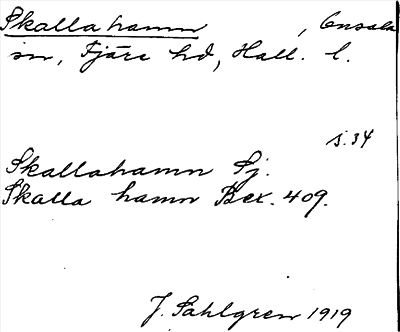 Skalla hamn , Onsala
sn, Fjäre hd, Hall. l.
s. 34
Skallahamn Sj.
Skalla hamn Bex. 409.
J. Sahlgren 1919